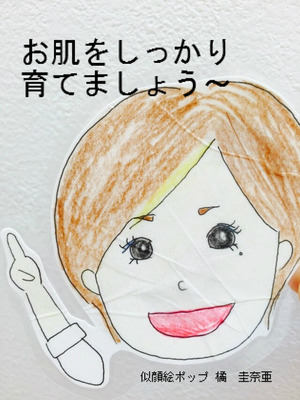 お肌をしっかり
育てましょう～
似顔絵ポップ 橘　圭奈亜